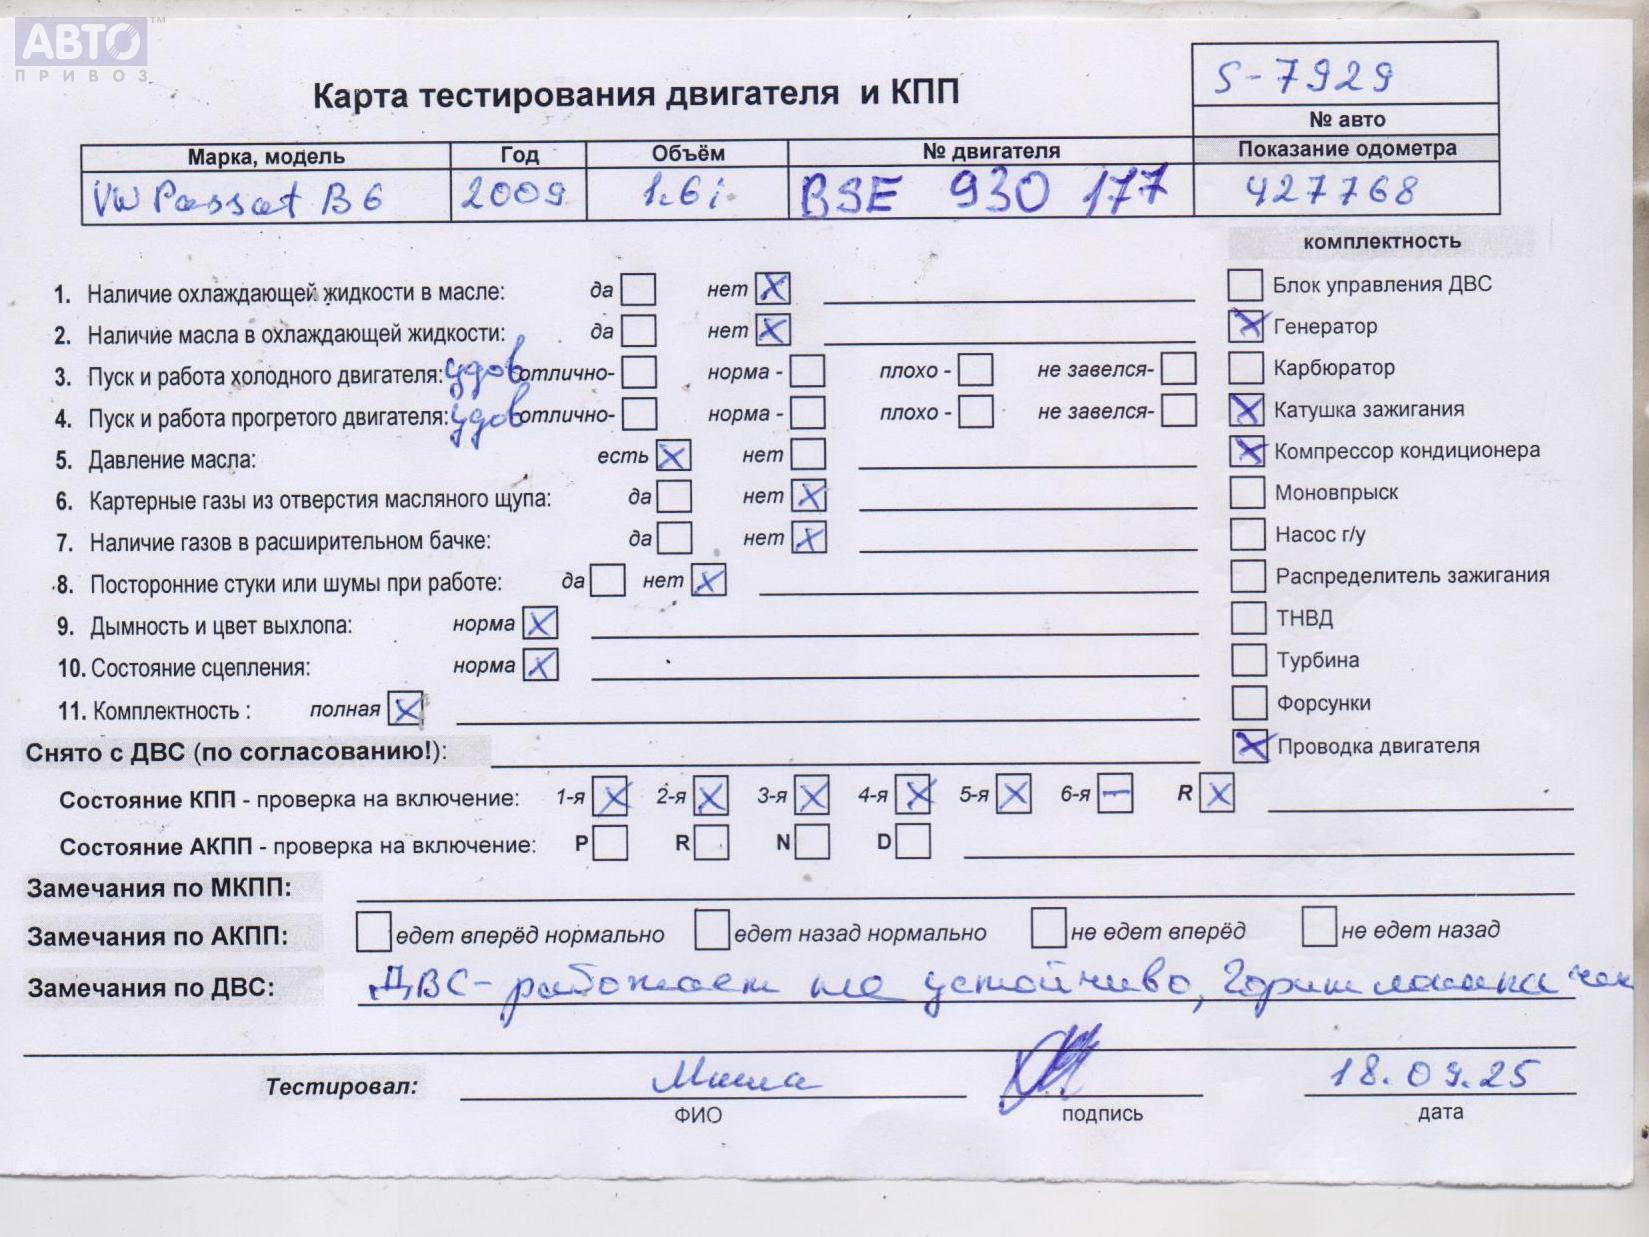 АВТО™
ПРИВОЗ
Карта тестирования двигателя и КПП
S-7929
№ авто
Марка, модель Год Объём № двигателя Показание одометра
VW Passat B6 2009 1.6i BSE 930 177 427768
комплектность
1. Наличие охлаждающей жидкости в масле: да нет X
Блок управления ДВС
2. Наличие масла в охлаждающей жидкости: да нет X
X Генератор
3. Пуск и работа холодного двигателя: удов отлично- норма - плохо - не завелся-
Карбюратор
4. Пуск и работа прогретого двигателя: удов отлично- норма - плохо - не завелся-
X Катушка зажигания
5. Давление масла: есть X нет
X Компрессор кондиционера
6. Картерные газы из отверстия масляного щупа: да нет X
Моновпрыск
7. Наличие газов в расширительном бачке: да нет X
Насос г/у
8. Посторонние стуки или шумы при работе: да нет X
Распределитель зажигания
9. Дымность и цвет выхлопа: норма X
ТНВД
10. Состояние сцепления: норма X
Турбина
11. Комплектность : полная X
Форсунки
Снято с ДВС (по согласованию!):
X Проводка двигателя
Состояние КПП - проверка на включение: 1-я X 2-я X 3-я X 4-я X 5-я X 6-я — R X
Состояние АКПП - проверка на включение: P R N D
Замечания по МКПП:
Замечания по АКПП: едет вперёд нормально едет назад нормально не едет вперёд не едет назад
Замечания по ДВС: ДВС - работает не устойчиво, Горит лампа чек
Тестировал: Миша 18.09.25
ФИО подпись дата